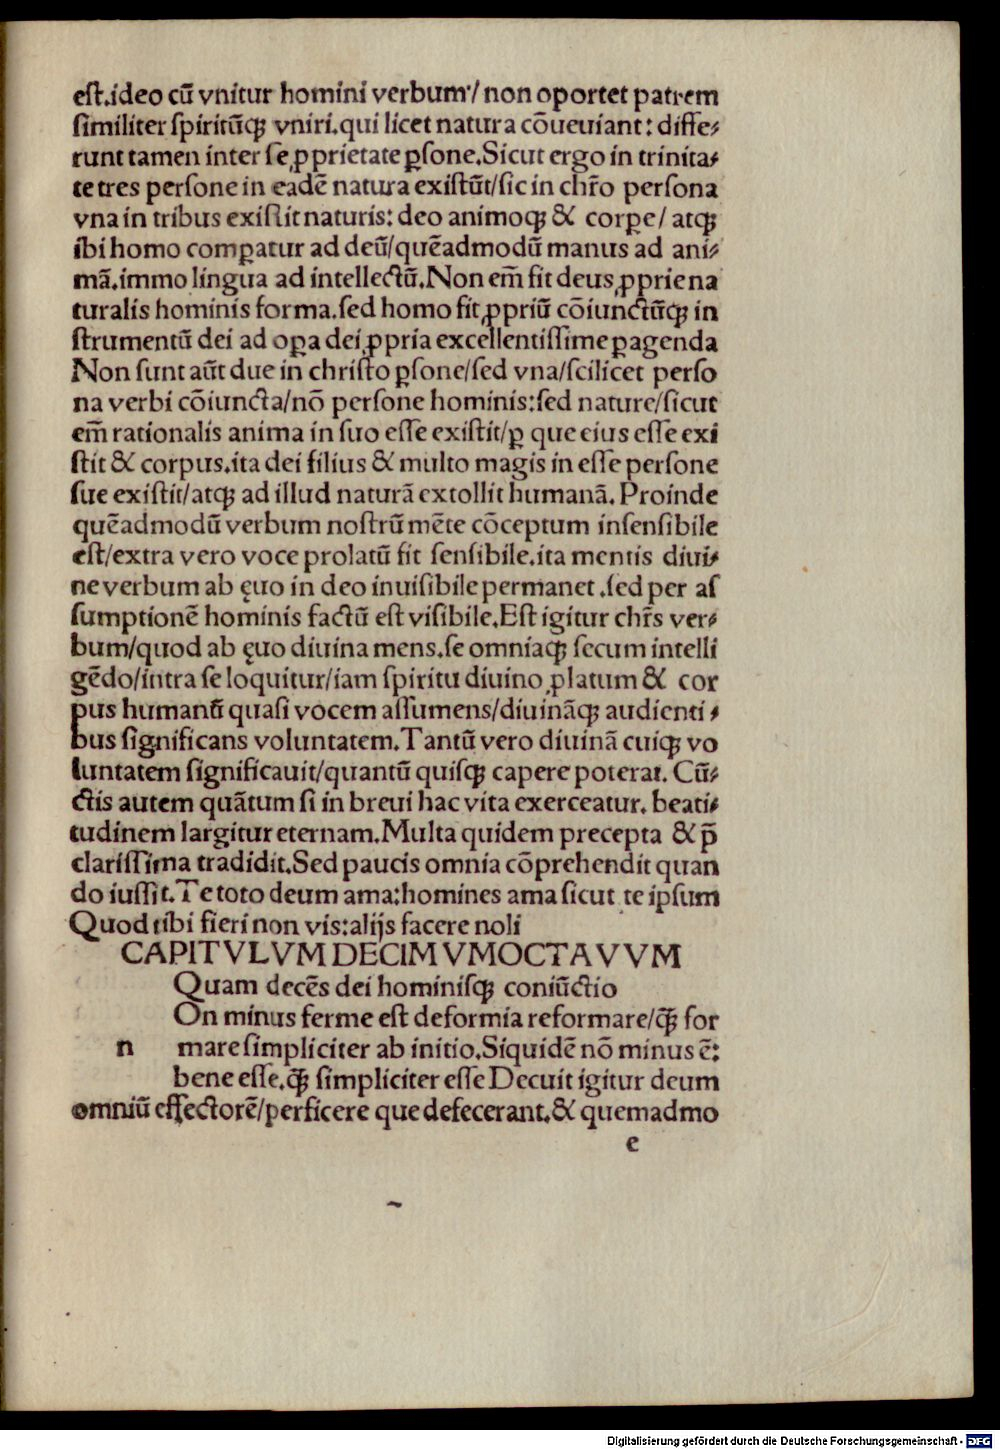 eſt.ideo cū vnitur homini verbum/ non oportet patrem
ſimiliter ſpiritūqꝫ vniri.qui licet natura cōueuiant: diffe⸗
runt tamen inter ſe ꝓprietate ꝑſone.Sicut ergo in trinita⸗
te tres perſone in eadē natura exiſtūt/ſic in chr̄o perſona
vna in tribus exiſtit naturis: deo animoqꝫ & corꝑe/ atqꝫ
ibi homo comꝑatur ad deū/quēadmodū manus ad ani⸗
mā.immo lingua ad intellectū.Non em̄ fit deus ꝓprie na
turalis hominis forma.ſed homo fit ꝓpriū cōiunctūqꝫ in
ſtrumentū dei ad oꝑa dei ꝓpria excellentiſſime ꝑagenda
Non ſunt aūt due in chriſto ꝑſone/ſed vna/ſcilicet perſo
na verbi cōiuncta/nō perſone hominis:ſed nature/ſicut
em̄ rationalis anima in ſuo eſſe exiſtit/ꝑ que eius eſſe exi
ſtit & corpus.ita dei filius & multo magis in eſſe perſone
ſue exiſtit/atqꝫ ad illud naturā extollit humanā. Proinde
quēadmodū verbum noſtrū mēte cōceptum inſenſibile
eſt/extra vero voce prolatū fit ſenſibile.ita mentis diui⸗
ne verbum ab ęuo in deo inuiſibile permanet .ſed per aſ
ſumptionē hominis factū eſt viſibile.Eſt igitur chr̄s ver⸗
bum/quod ab ęuo diuina mens.ſe omniaqꝫ ſecum intelli
gēdo/intra ſe loquitur/iam ſpiritu diuino ꝓlatum & cor
pus humanū quaſi vocem aſſumens/diuināqꝫ audienti⸗
bus ſignificans voluntatem.Tantū vero diuinā cuiqꝫ vo
luntatem ſignificauit/quantū quiſqꝫ capere poterat. Cū⸗
ctis autem quātum ſi in breui hac vita exerceatur. beati⸗
tudinem largitur eternam.Multa quidem precepta & p̄
clariſſima tradidit.Sed paucis omnia cōprehendit quan
do iuſſit.Te toto deum ama:homines ama ſicut te ipſum
Quod tibi fieri non vis:alijs facere noli
CAPITVLVM DECIMVMOCTAVVM
Quam decēs dei hominiſqꝫ coniūctio
On minus ferme eſt deformia reformare/qꝫ̄ for
n mare ſimpliciter ab initio.Siquidē nō minus ē:
bene eſſe.qꝫ̄ ſimpliciter eſſe Decuit igitur deum
omniū effectorē/perficere que defecerant.& quemadmo
e
Digitalisierung gefördert durch die Deutsche Forschungsgemeinschaft - DFG